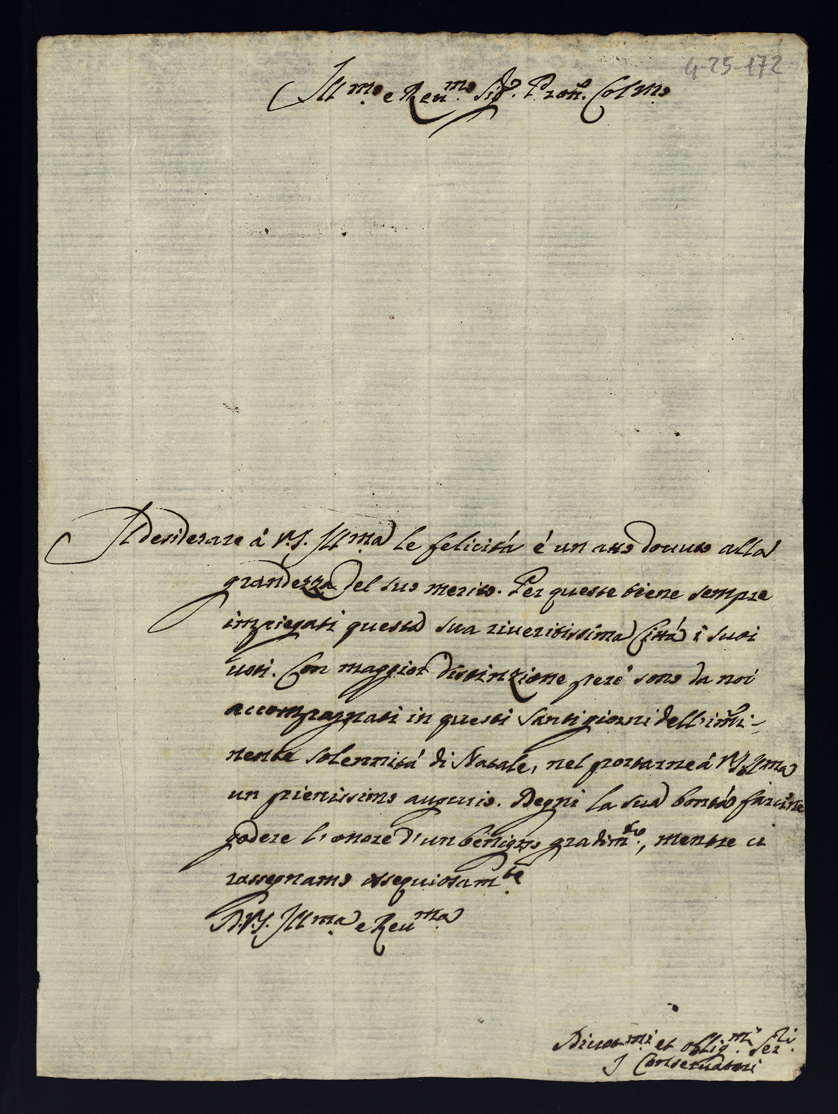 4-25-172
Ill.mo e Reu.mo Sig.r Pron. Col.mo
Il desiderare á V.S. Ill.ma le felicitá é un atto douuto alla
grandezza del suo merito. Per queste tiene sempre
impiegati questa sua riueritissima Cittá i suoi
uoti. Con maggior distinzione peró sono da noi
accompagnati in questi Santi giorni dell'immi-
nente solennitá di Natale, nel portarne á V.S. Ill.ma
un pienissimo augurio. Degni la sua bontá farcene
godere l'onore d'un benigno gradim.to, mentre ci
rassegnamo ossequiosam.te
D.V.S. Ill.ma e Reu.ma
Diuot.mi et oblig.mi Ser.ri
I Conseruatori